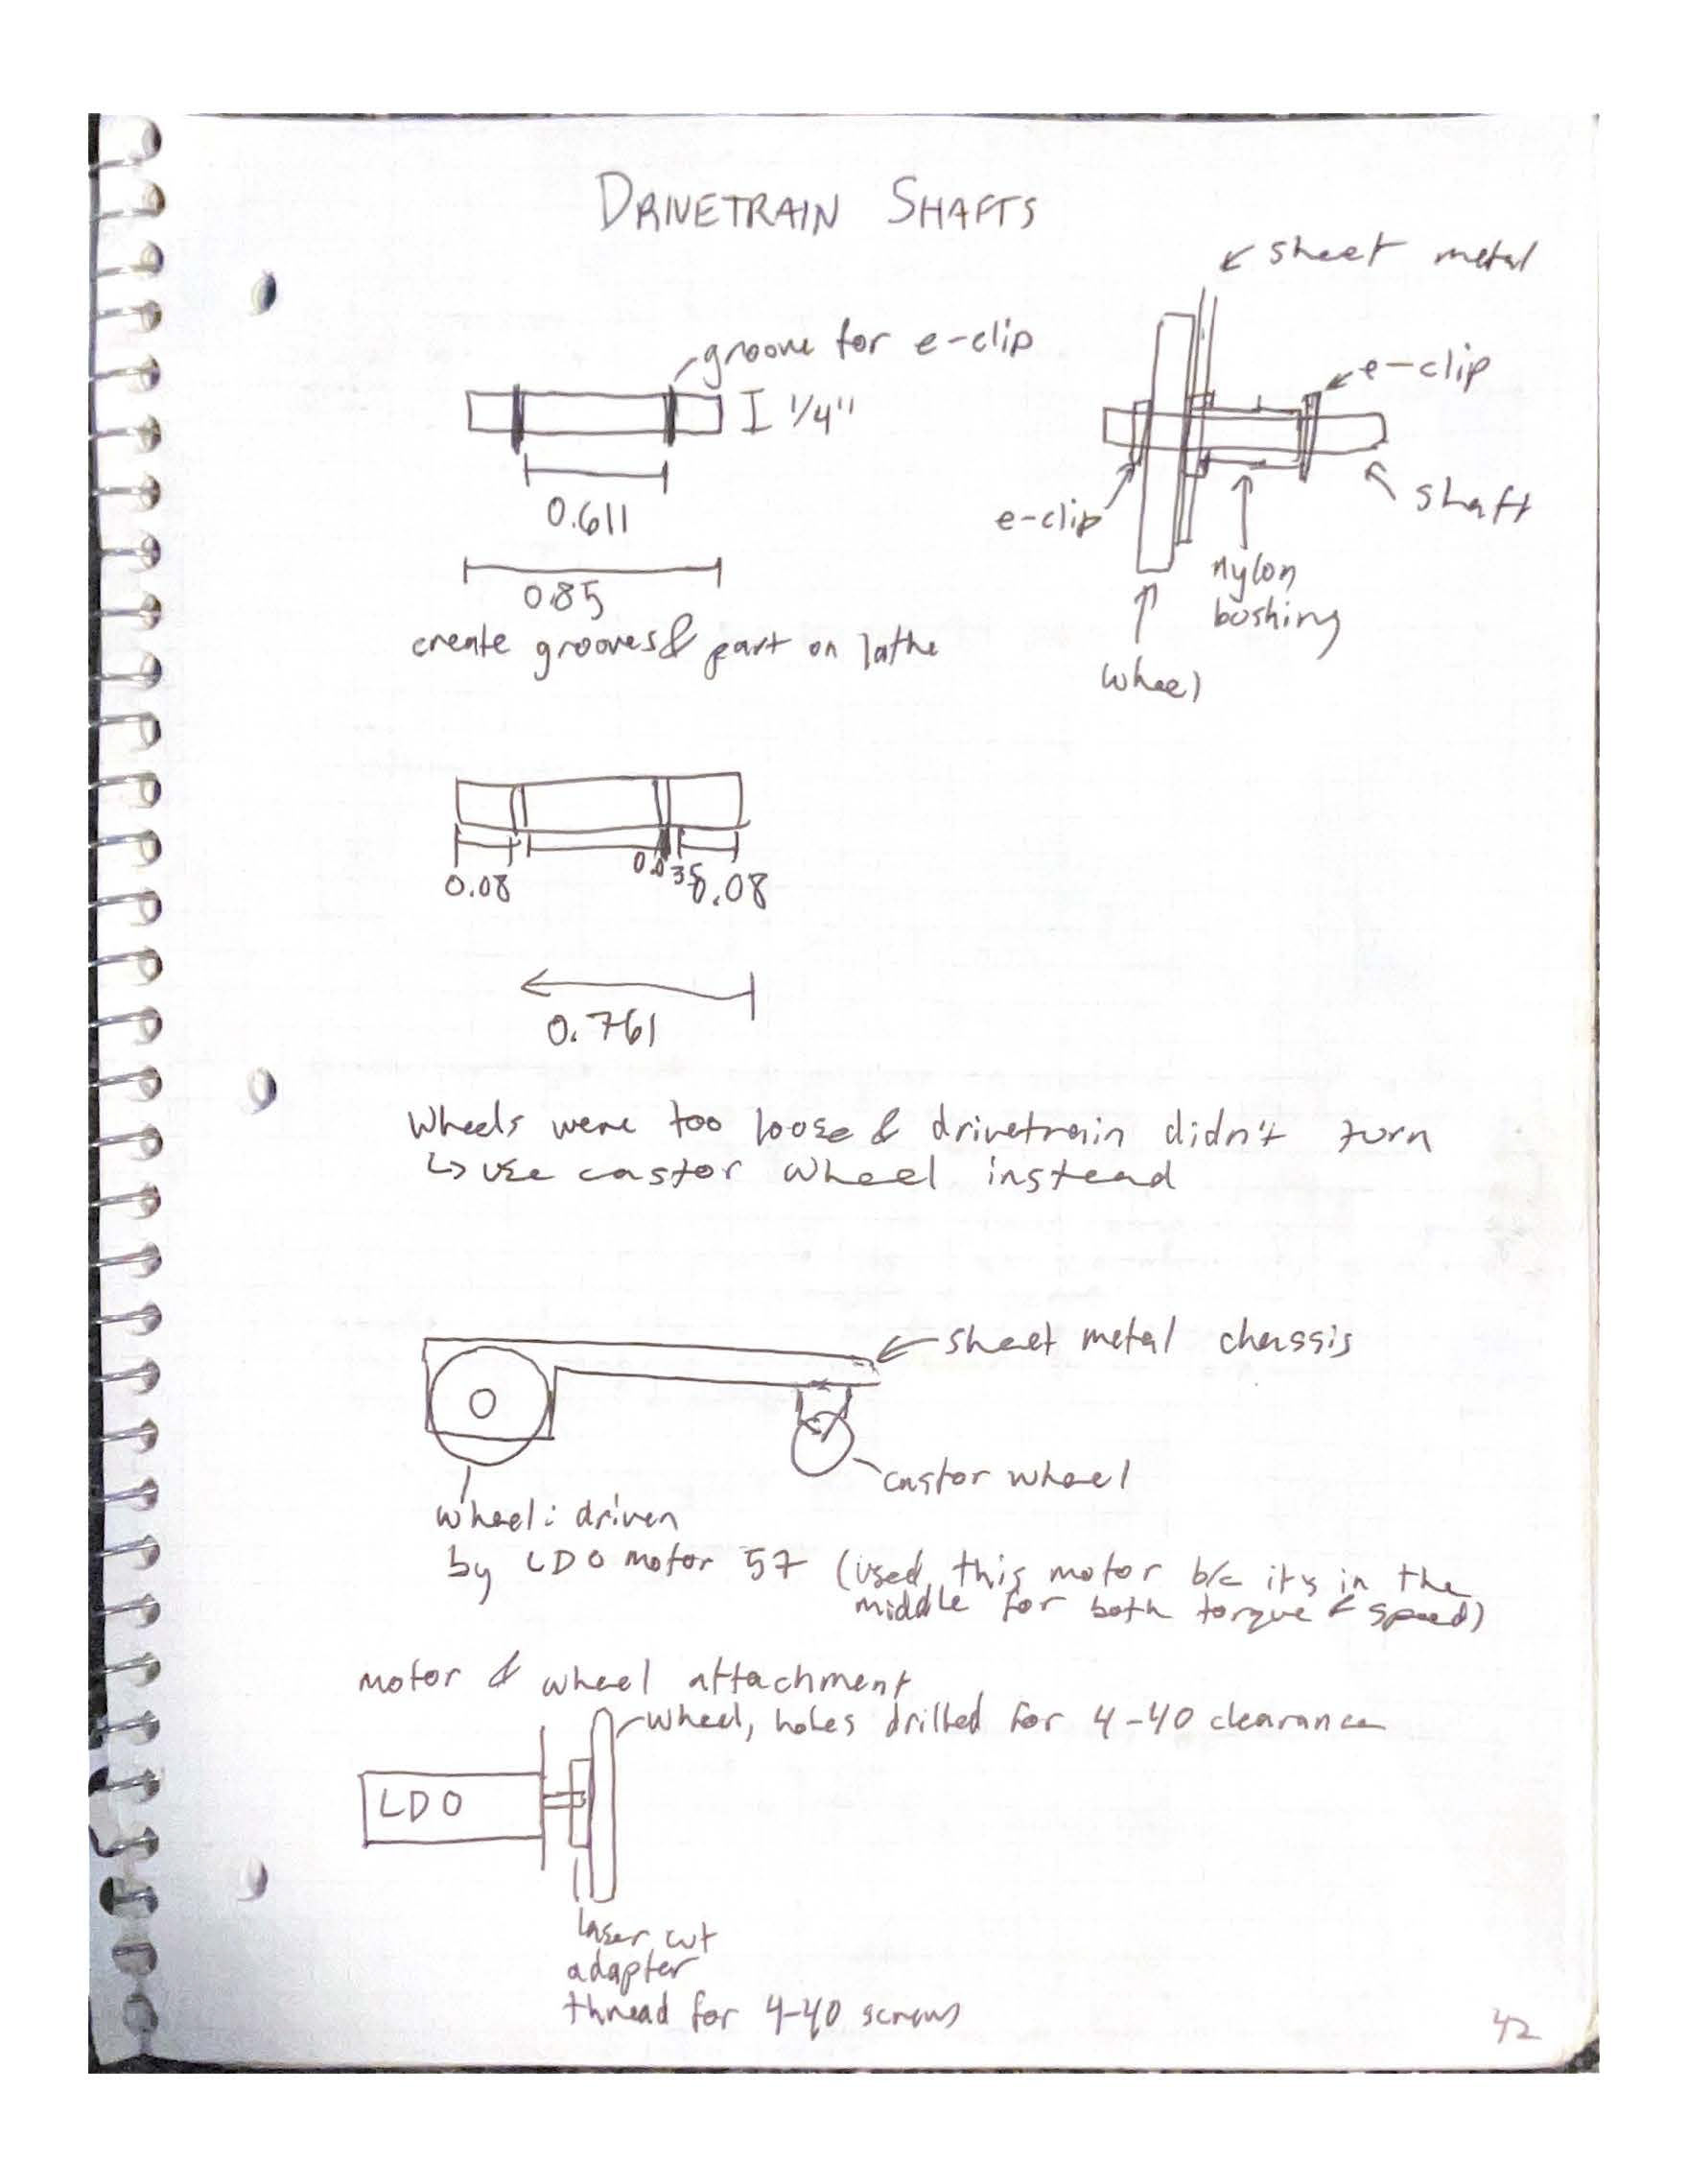 DRIVETRAIN SHAFTS
sheet metal
groove for e-clip
1/4"
e-clip
0.611
e-clip
shaft
0.85
nylon
bushing
create grooves & part on lathe
wheel
0.08
0.035
0.08
0.761
Wheels were too loose & drivetrain didn't turn
↳ use castor wheel instead
sheet metal chassis
castor wheel
wheel: driven
by LDO motor 57 (used this motor b/c its in the
middle for both torque & speed)
motor & wheel attachment
wheel, holes drilled for 4-40 clearance
LDO
laser cut
adapter
thread for 4-40 screws
42